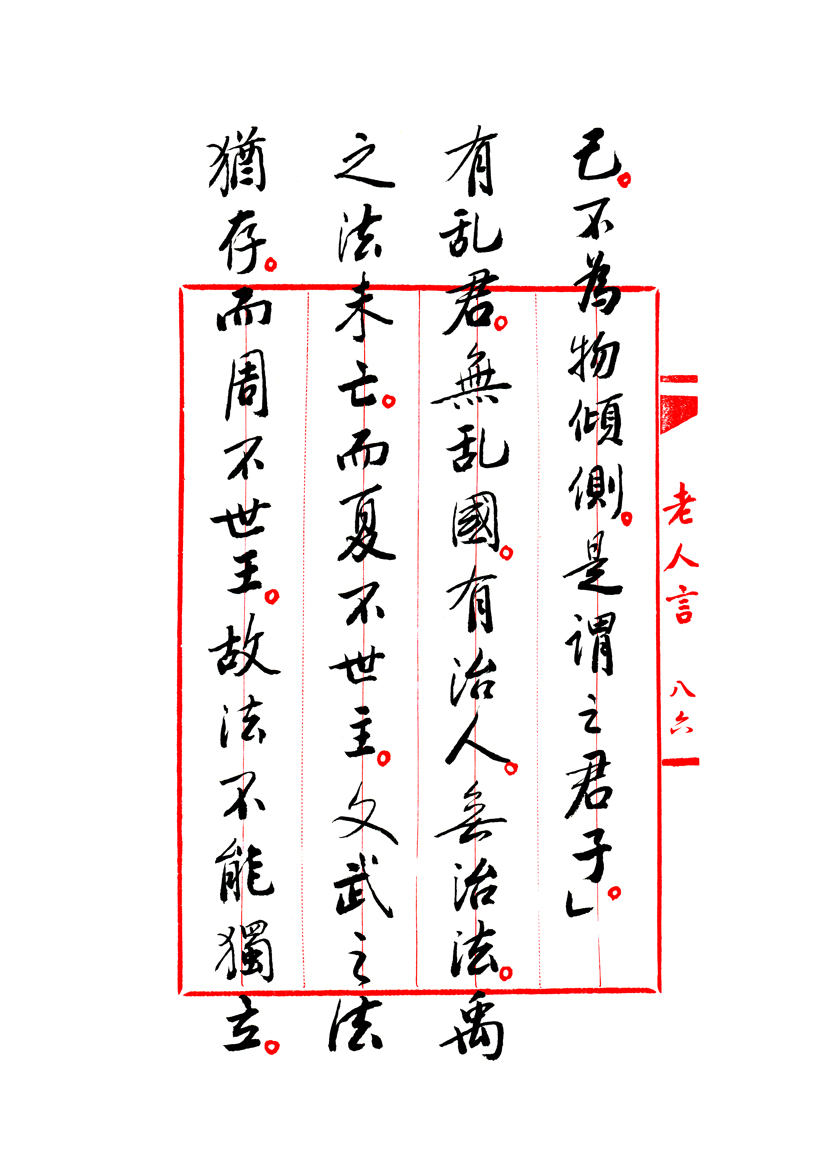 己。不為物傾側。是謂之君子」。
有乱君。無乱國。有治人。無治法。禹
之法未亡。而夏不世主。文武之法
猶存。而周不世王。故法不能獨立。
老人言 八六